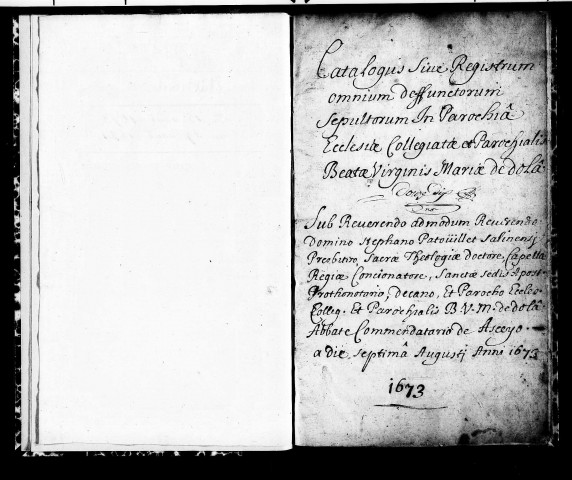 Catalogus Sive Registrum
omnium deffunctorum
Sepultorum In Parochiâ
Ecclesiæ Collegiatæ et Parochialis
Beatæ Virginis Mariæ de dolâ
Sub Reverendo admodum Reverendo
Domino Stephano Patoüillet Salinensj
Presbitro, Sacræ Theologiæ doctore, Capellæ
Regiæ Concionatore, Sanctæ sedis Apost.
Prothonotario, decano, Et Parocho Eccles.
Colleg. Et Parochialis B.V.M. de dolâ
Abbate Commendatario de Asceyo
a die septimâ Augustj Anni 1673
1673